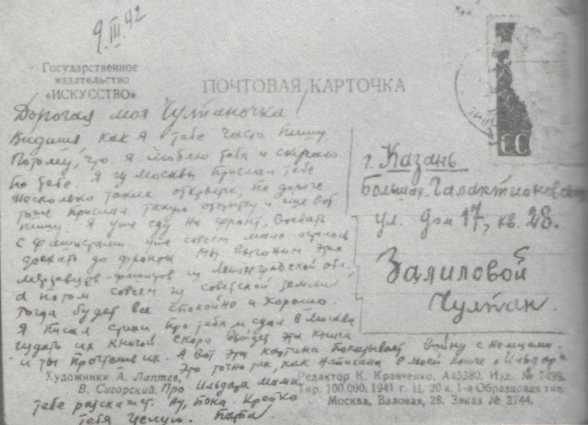 9.III.42
Государственное
издательство
«ИСКУССТВО»
ПОЧТОВАЯ КАРТОЧКА
Дорогая моя Чулпаночка!
Видишь как я тебе часто пишу
Потому, что я люблю тебя и скучаю
по тебе. Я из Москвы прислал тебе
несколько таких открыток, по дороге
тоже прислал такую открытку и еще вот
пишу. Я уже еду на фронт, воевать
с фашистами уже совсем мало осталось
доехать до фронта. Мы выгоним этих
мерзавцев-фашистов из Ленинградской обл.,
а потом совсем из советской земли
тогда будет все спокойно и хорошо
Я писал стихи про тебя и сдал в Москве
издать их книгой. Скоро выйдет эта книга
и ты прочтешь их. А вот эта картина показывает войну с немцами.
Это точно так, как написано в моей книге «Ильдар».
Про Ильдара мама
тебе расскажет. Ну, пока. Крепко
тебя целую. Папа.
г. Казань
Большая Галактионовская
ул. дом 17, кв. 28.
Залиловой
Чулпан.
Художники А. Лаптев,
В. Сигорский.
Редактор К. Кравченко, А45380. Изд. №
Тир. 100.000, 1941 г. Ц. 20 к. 1-я Образцовая тип.
Москва, Валовая, 28. Заказ № 2744.